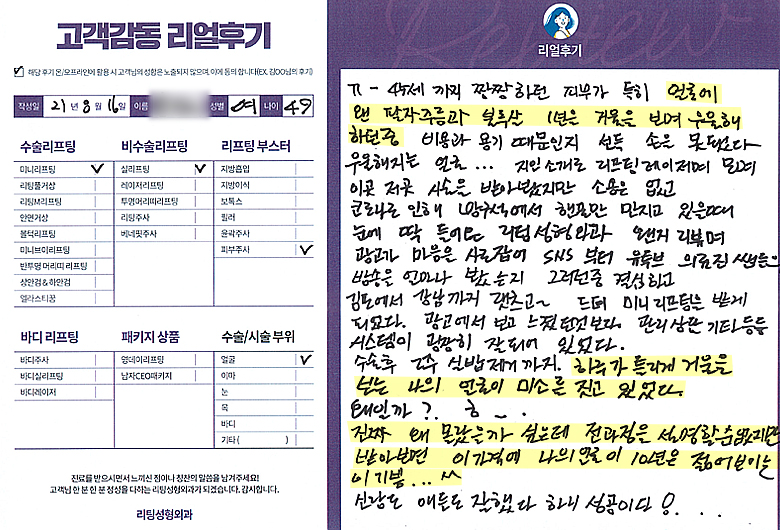 고객감동 리얼후기
해당 후기 온/오프라인에 활용 시 고객님의 성함은 노출되지 않으며, 이에 동의 합니다(EX. 김OO님의 후기)
작성일 21년 8월 16일 이름 성별 여 나이 49
수술리프팅 비수술리프팅 리프팅 부스터
미니리프팅 실리프팅 지방흡입
리팅풀거상 레이저리프팅 지방이식
리팅M리프팅 투명어리띠리프팅 보톡스
안면거상 리팅주사 필러
볼턱리프팅 베네핏주사 윤곽주사
미니브이리프팅 피부주사
반투명 머리띠 리프팅
상안검 & 하안검
엘라스티꿈
바디 리프팅 패키지 상품 수술/시술 부위
바디주사 영데이리프팅 얼굴
바디실리프팅 남자CEO패키지 이마
바디레이저 눈
목
바디
기타( )
진료를 받으시면서 느끼신 점이나 칭찬의 말씀을 남겨주세요!
고객님 한 분 한 분 정성을 다하는 리팅성형외과가 되겠습니다. 감사합니다.
리팅성형외과
Review
리얼후기
45세 까지 짱짱하던 피부가 특히 얼굴에
왠 팔자주름과 불독살 1년은 거울을 보며 우울해
하던중 비용과 용기 때문인지 선뜻 손은 못댔다
우울해지는 얼굴... 지인소개로 리프팅레이저며 모며
이곳 저곳 시술은 받아보았지만 소용은 없고
코로나로 인해 방구석에서 핸폰만 만지고 있을때
눈에 딱 들어온 리팅성형외과 왠지 리뷰며
광고가 마음을 사로잡아 SNS 부터 유튜브 의료진 쌤들은
방송은 얼마나 봤는지 그러던중 결심하고
김포에서 강남까지 갔츠고~ 드뎌 미니리프팅을 받게
되었다. 광고에서 보고 느꼈던것보다 관리상관 기타등등
시스템이 굉장히 잘되어 있었다.
수술후 2주 실밥제거까지. 하루가 틀리게 거울을
보는 나의 얼굴이 미소를 짓고 있었다.
왜인가?. ㅎ~.
진짜 왜 몰랐는가 싶은데 전과정은 설명할순없지만
받아보면 이가격에 나의얼굴이 10년은 젊어보이는
이기분... ^^
신랑도 애들도 잘했다 하니 성공이다!...